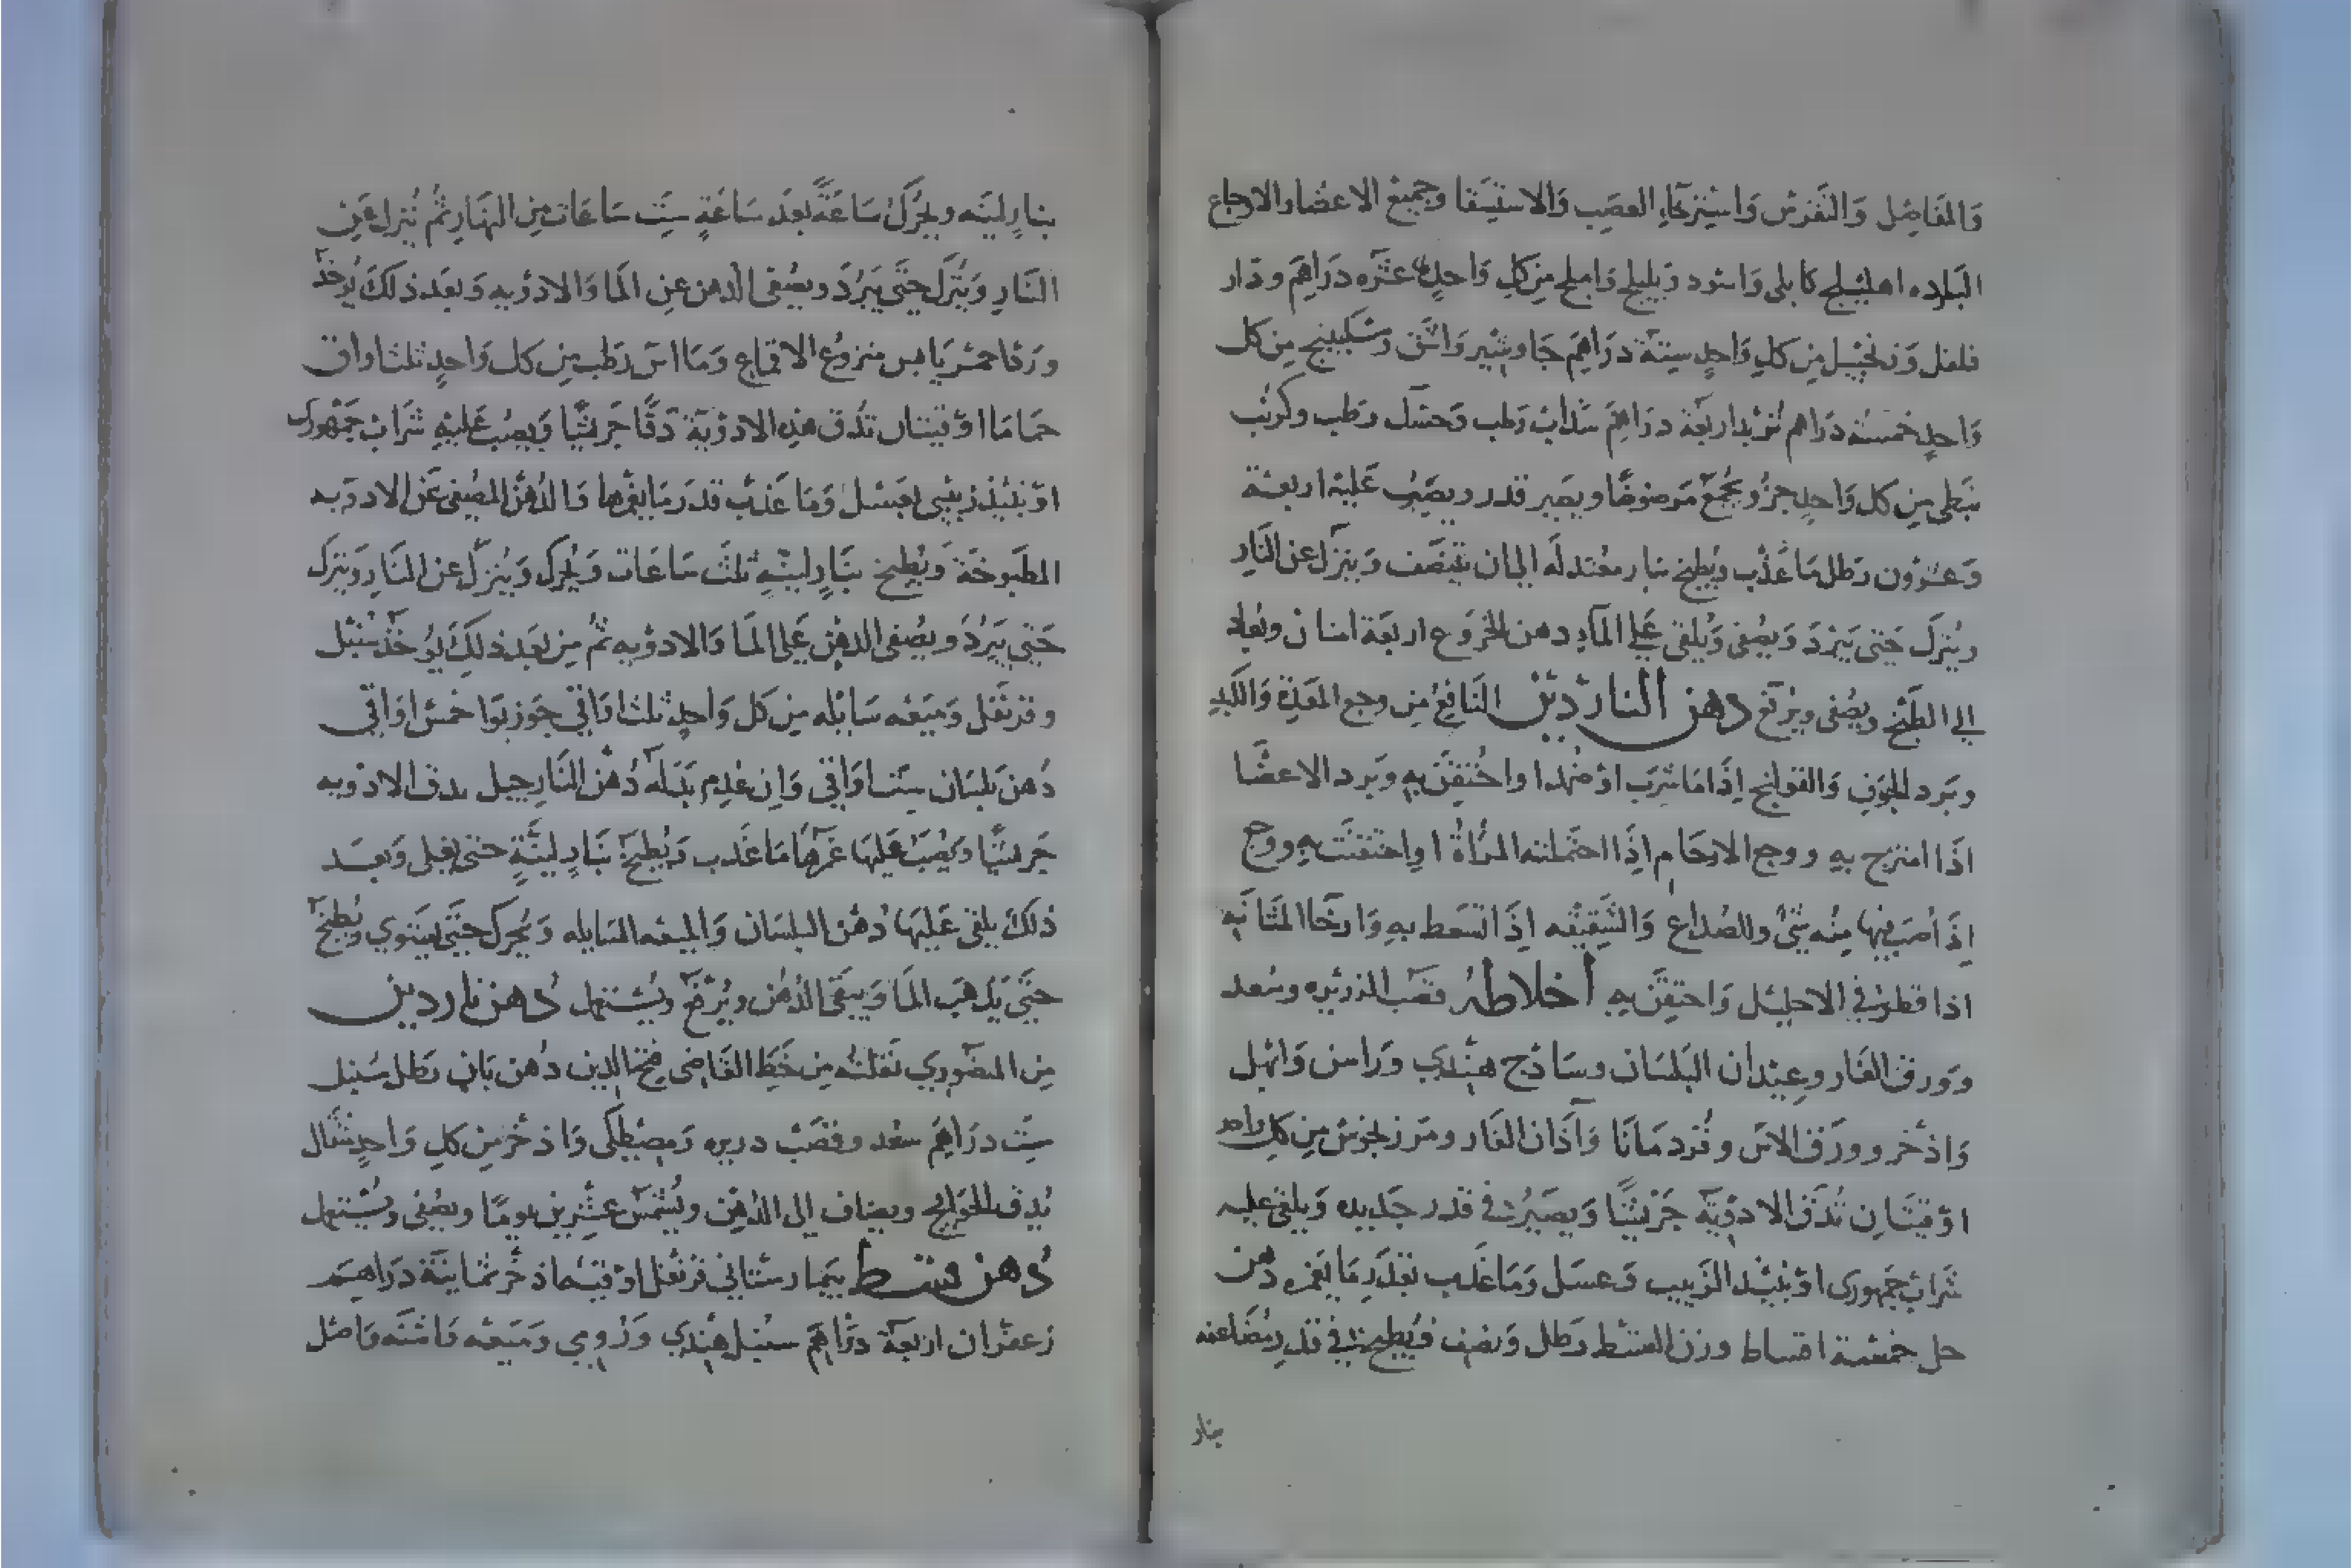 والمفاصل والنقرس واسترخاء العصب والاستسقا وجميع الاعضا والاوجاع
البارده اهليلج كابلى واسود وبليلج واملج من كل واحد عشره دراهم ودار
فلفل وزنجبيل من كل واحد ستة دراهم جاوشير واشق وسكبينج من كل
واحد خمسة دراهم تربد اربعة دراهم سذاب رطب وحسك رطب وكرنب
نبطى من كل واحد جزو يجمع مرضوضا ويصير قدر ويصب عليه اربعة
وعشرون رطل ما عذب ويطبخ بنار معتدله الى ان ينتصف وينزل عن النار
ويترك حتى يبرد ويصفى ويلقى على الماء دهن الخروع اربعة امنان ويعاد
الى الطبخ ويصفى ويرفع دهن الناردين النافع من وجع المعدة والكبد
وبرد الجوف والقولنج اذا ما شرب او ضمد او احتقن به وبرد الاعضا
اذا امتزج به ووجع الارحام اذا احتملته المراة او احتقنت به ووجع
اذا صب فيها منه شى وللصداع والشقيقه اذا تسعط به وارخا المثانه
اذا قطر فى الاحليل واحتقن به اخلاطه قصب الذريره وسعد
وورق الغار وعيدان البلسان وساذج هندي وراسن وابهل
واذخر وورق الاس وقردمانا وآذان الفار ومرزنجوش من كل واحد
اوقيتان تدق الادوية جريشا ويصير فى قدر جديده ويلقى عليه
شراب جمهورى او نبيذ الزبيب وعسل وما عذب بقدر ما يغمره دهن
حل خمسة اقساط وزن القسط رطل ونصف ويطبخ فى قدر مضاعفه
بنار
بنار لينه ويحرك ساعة بعد ساعة ست ساعات من النهار ثم ينزل عن
النار ويترك حتى يبرد ويصفى الدهن عن الما والادويه وبعد ذلك يوخذ
ورد احمر يابس منزوع الاقماع وما اس رطب من كل واحد ثلث اواق
حماما اوقيتان تدق هذه الادوية دقا جريشا ويصب عليه شراب جمهورى
او نبيذ زبيبى بعسل وما عذب قدر ما يغمرها والدهن المصفى عن الادويه
المطبوخة ويطبخ بنار لينة ثلث ساعات ويحرك وينزل عن النار ويترك
حتى يبرد ويصفى الدهن على الما والادويه ثم من بعد ذلك يوخذ سنبل
وقرنفل وميعه سايله من كل واحد ثلث اواقى جوزبوا خمس اواقى
دهن بلسان ست اواقى وان عدم بدله دهن النارجيل يدق الادويه
جريشا ويصب عليها غمرها ما عذب ويطبخ بنار لينة حتى يغلى وبعد
ذلك يلقى عليها دهن البلسان والميعه السايله ويحرك حتى يستوي ويطبخ
حتى يذهب الما ويبقى الدهن ويرفع ويستعمل دهن ناردين
من المنصوري نقلته من خط القاضى فتح الدين دهن بان رطل سنبل
ست دراهم سعد وقصب دريره ومصطكى واذخر من كل واحد مثقال
يدق الحوايج ويضاف الى الدهن ويشمس عشرين يوما ويصفى ويستعمل
دهن قسط بيمارستانى قرنفل اوقيه اذخر ثمانية دراهم
زعفران اربعة دراهم سنبل هندي ورومي وميعه